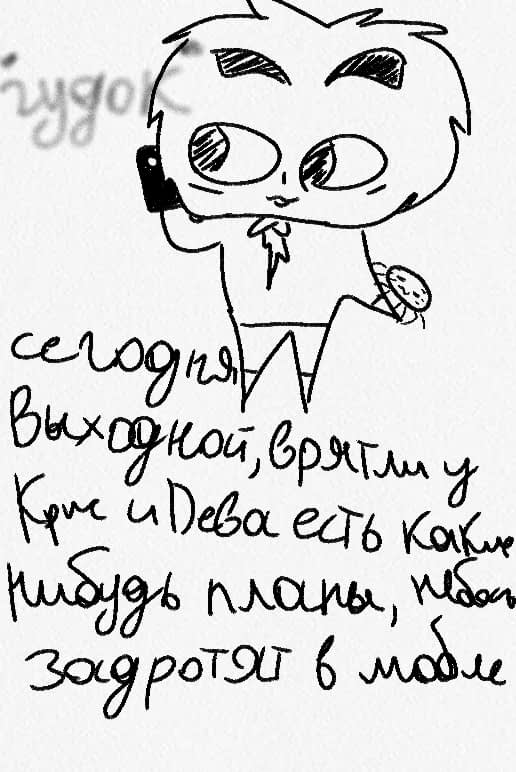 гудок
сегодня
выходной, врятли у
Крис и Дева есть какие
нибудь планы, небось
задротят в мобле